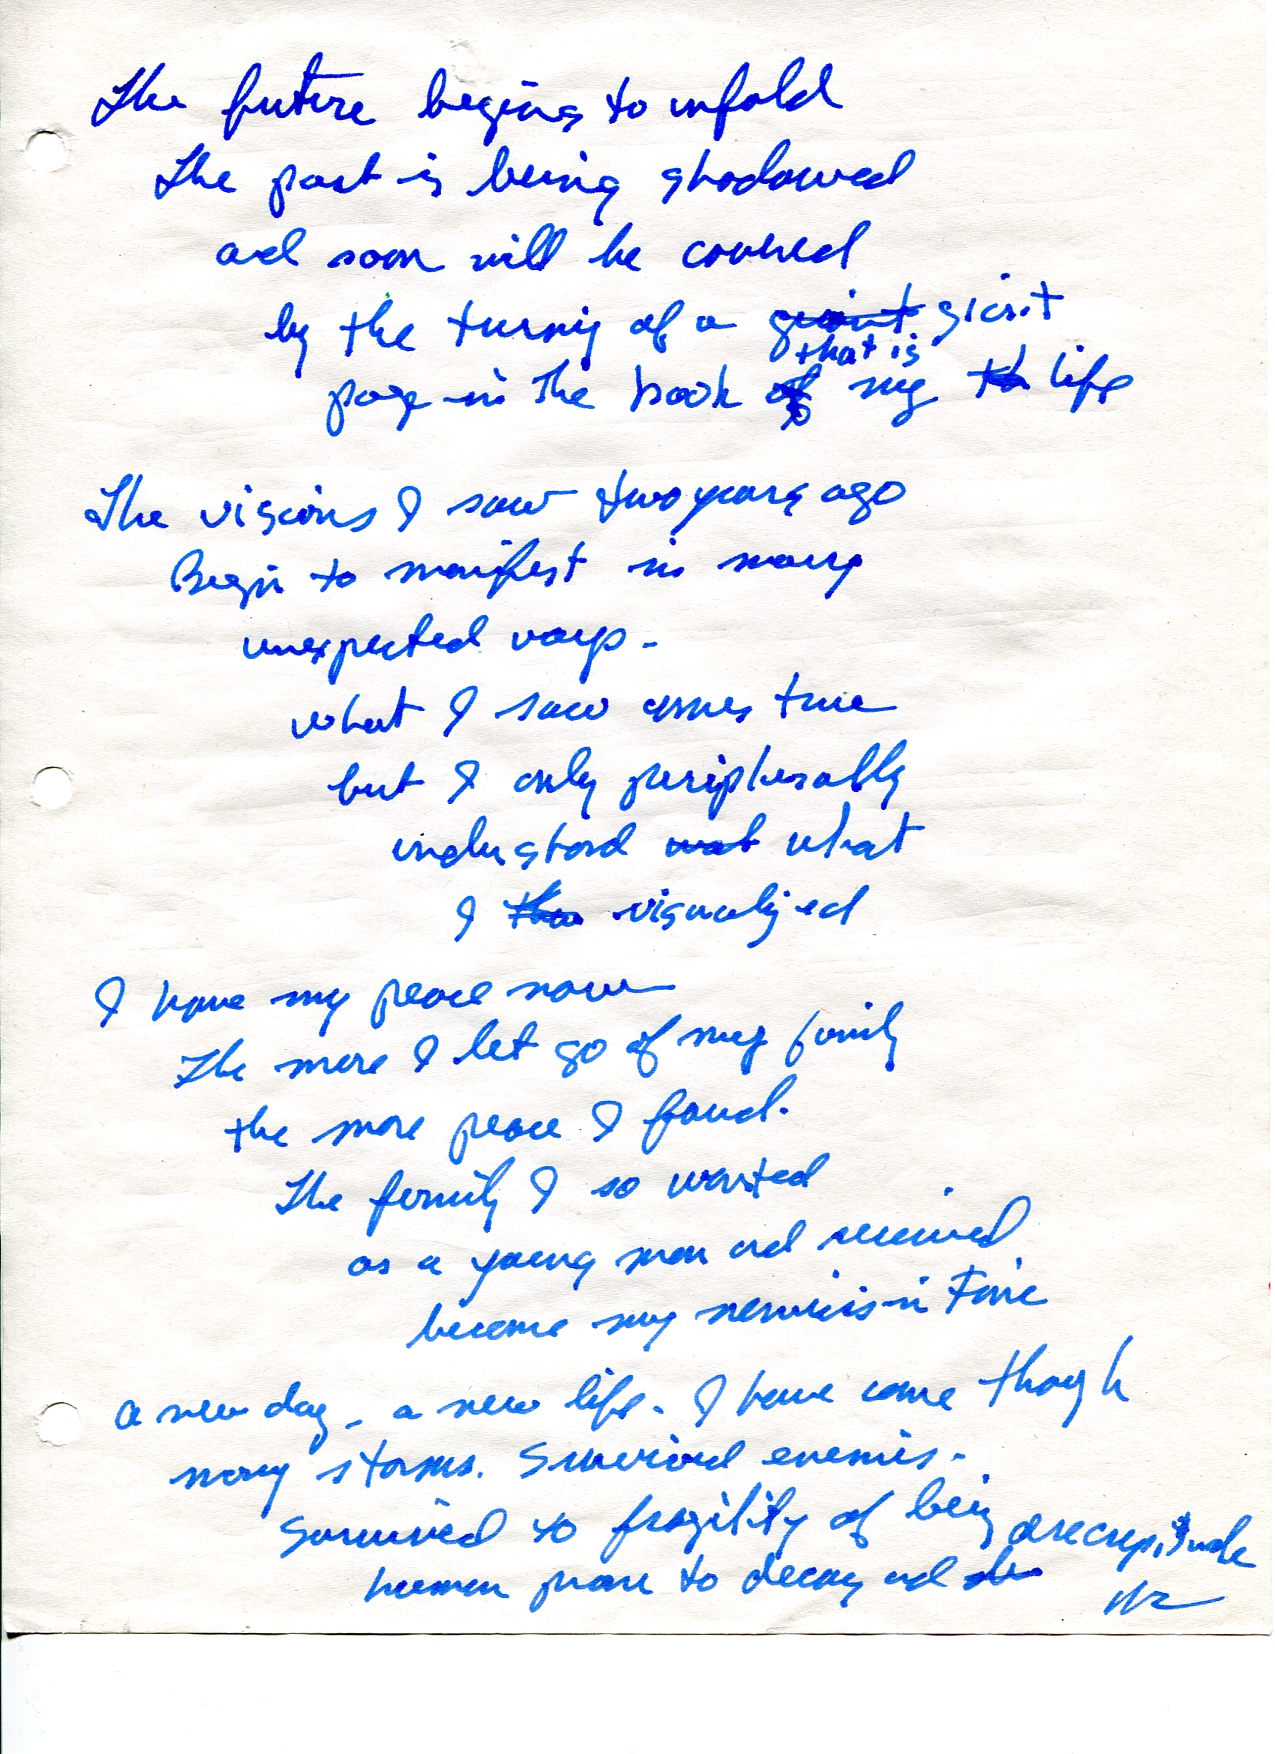 The future begins to unfold
The past is being shadowed
and soon will be covered
by the turning of a giant giant
that is
page in the book of my th life
The visions I saw two years ago
Begin to manifest in many
unexpected ways -
what I saw comes true
but I only peripherally
understood what
I visualized
I have my peace now
The more I let go of my family
the more peace I found.
The family I so wanted
as a young man and received
became my nemisis in time
a new day - a new life. I have come though
many storms. Survived enemies.
Survived to fragility of being
decrepitude
human prone to decay and